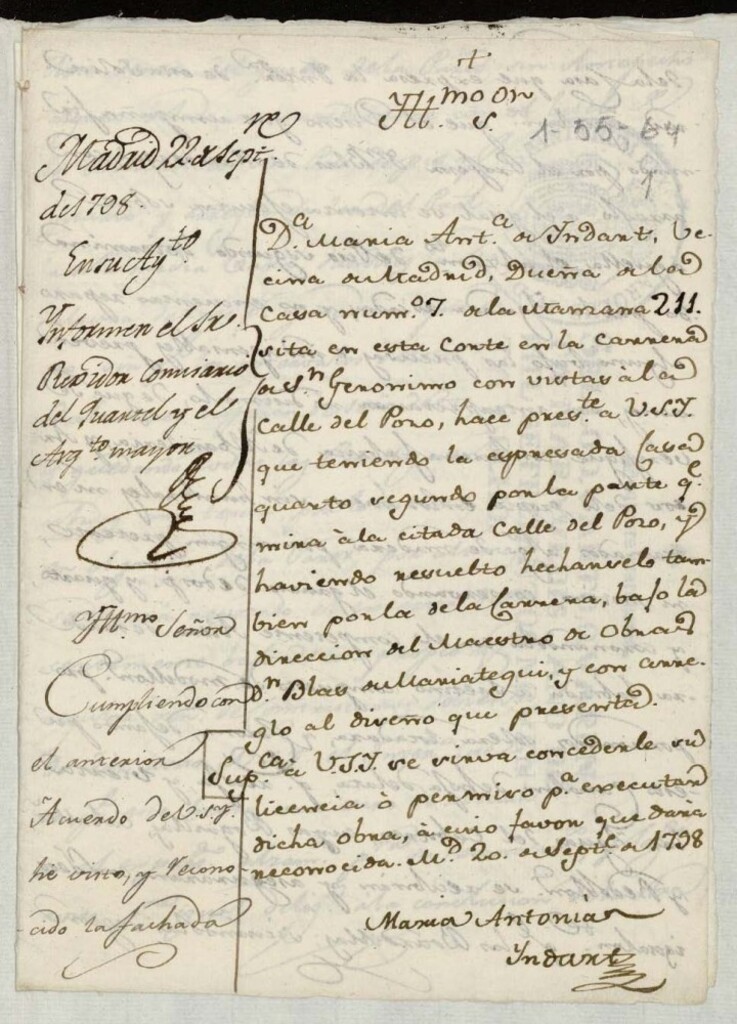 +
Yll.mo or
S.
1-55-84
1
re
Madrid 22 de Sept.
de 1798.
En su Ay.to
Ynformen el Sr.
Rexidor Comisario
del Quartel y el
Arq.to mayor
Yll.mo Señor
Cumpliendo con
el anterior
Acuerdo de V.S.Y.
he visto, y recono-
cido la fachada
D.a Maria Ant.a de Yndart, Ve-
cina de Madrid, Dueña de la
Casa num.o 7. de la Manzana 211.
sita en esta Corte en la Carrera
de S.n Geronimo con vistas à la
Calle del Pozo, hace pres.te a V.S.Y.
que teniendo la expresada Casa
quarto segundo por la parte q.e
mira à la citada Calle del Pozo, y
haviendo resuelto hecharselo tam-
bien por la de la Carrera, bajo la
direccion del Maestro de Obras
D.n Blas de Mariategui, y con arre-
glo al diseño que presenta.
Sup.ca à V.S.Y. se sirva concederle su
licencia ò permiso p.a executar
dicha obra, à cuio favor quedara
reconocida. M.d 20. de Sept.e de 1798
Maria Antonia
Yndart